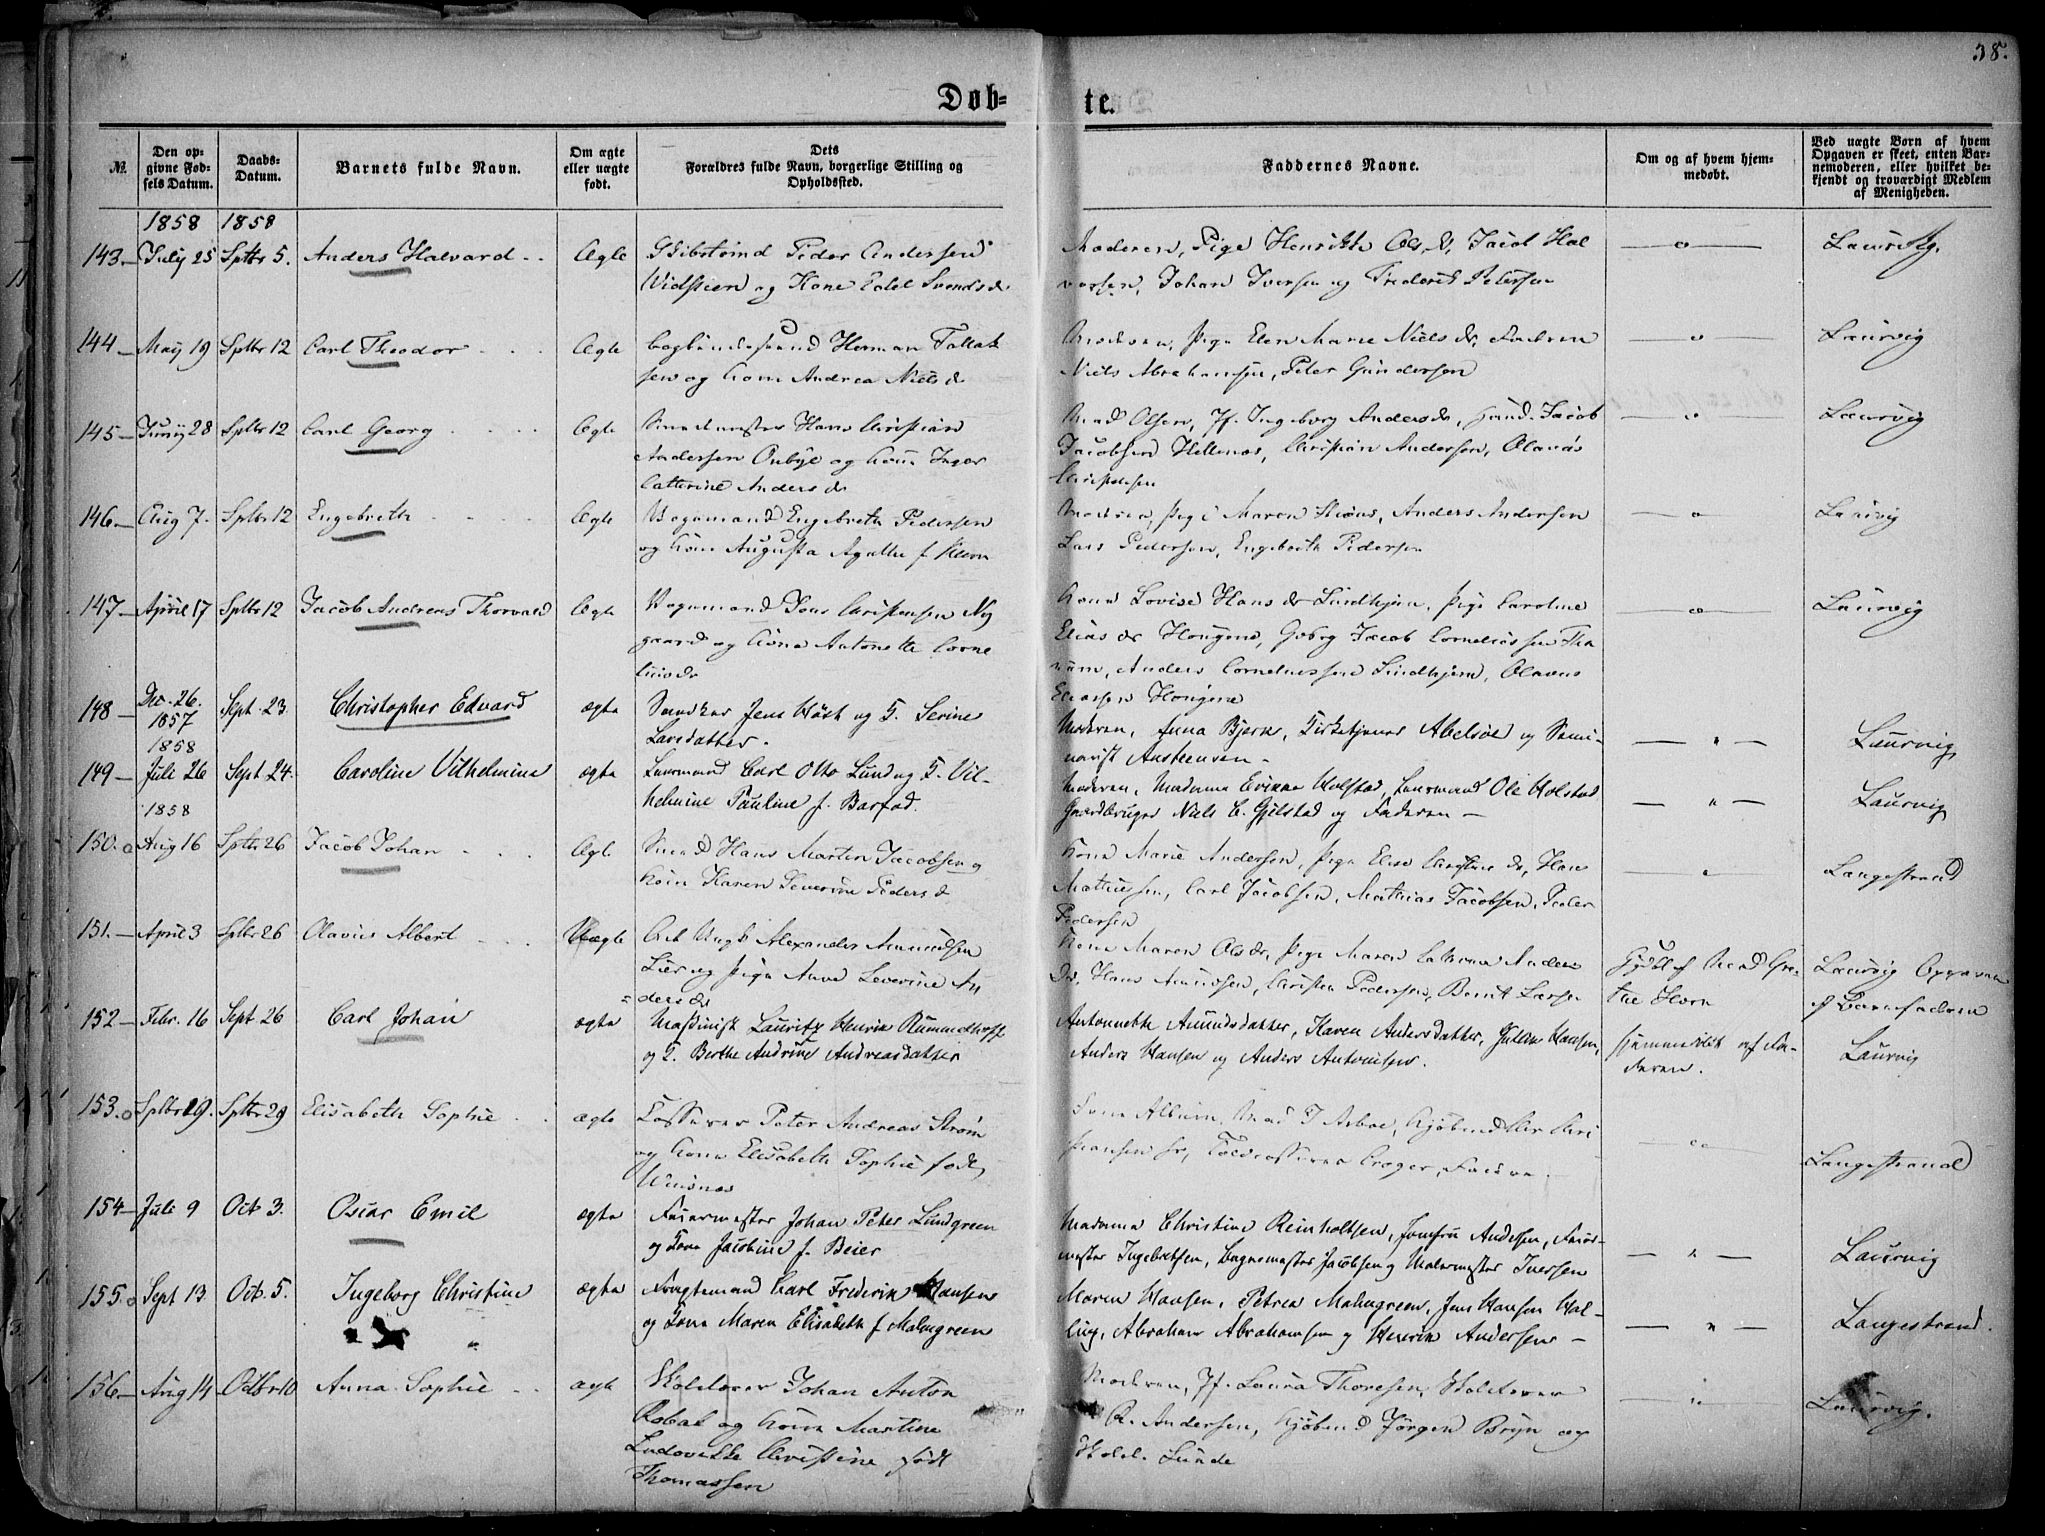 38.
Døb=
te.
№.
Den op-
givne Fød-
sels Datum.
Daabs-
Datum.
Barnets fulde Navn.
Om ægte
eller uægte
født.
Dets
Forældres fulde Navn, borgerlige Stilling og
Opholdssted.
Faddernes Navne.
Om og af hvem hjem-
medøbt.
Ved uægte Børn af hvem
Opgaven er skeet, enten Bar-
nemoderen, eller hvilket be-
kjendt og troværdigt Medlem
af Menigheden.
1858 1858
143 — July 25 Sptbr 5. Anders Halvard Ægte
Peder Andersen
og Kone Edel Svends d
Moderen, Pige Henrikke Ols d, Jacob Hal
vorsen, Johan Iversen og Frederik Petersen
Laurvig.
144 — May 19 Sptbr 12 Carl Theodor Ægte
Herman Tollak
sen og Kone Andrea Niels d
Moderen, Pige Elen Marie Niels dr, Faderen
Niels Abrahamsen, Peter Gundersen
Laurvig
145 — Juny 28 Sptbr 12 Carl Georg Ægte
Hans Christian
Andersen Ouby og Kone Inger
Cathrine Anders dr
Mad Olsen, Jf. Ingeborg Anders dr, Jacob
Jacobsen Hellenes, Christian Andersen, Olaus
Christensen
Laurvig
146 — Aug 7. Sptbr 12 Engebreth Ægte
Vognmand Engebreth Pedersen
og Kone Augusta Agathe f.
Moderen, Pige Maren, Anders Andersen
Lars Pedersen, Engebreth Pedersen
Laurvig
147 — April 17 Sptbr 12 Jacob Andreas Thorvald Ægte
Vognmand Jens Christensen Ny
gaard og Kone Antonette Corne
lius dr
Kone Lovise Hans dr Lindhjem, Pige Caroline
Elias dr Hougene, Jacob Corneliussen Tha
num, Anders Corneliussen Lindhjem, Olaus
Eliassen Hougene
Laurvig
148 — Dec. 26. 1857 Sept. 23. Christopher Edvard ægte
Jens og K. Serine
Larsdatter.
Moderen, Anna Bjerk, Kirketjener Abelsøe og Semi-
narist Austeensen —
Laurvig
1858
149 — Juli 26 Sept. 24. Caroline Vilhelmine ægte
Carl Otto Lund og K. Vil-
helmine Pauline f. Barfod.
Moderen, Madame Holstad, Ole Holstad
Gaardbruger Niels C. Gjelstad og Faderen —
Laurvig
1858
150. Aug 16 Sptbr 26 Jacob Johan Ægte
Smed Hans Martin Jacobsen og
Kone Karen Severine Peders d
Kone Marie Andersen, Pige Elise Christens dr, Hans
Mathiesen, Carl Jacobsen, Mathias Jacobsen, Peder
Pedersen
Langestrand
151. — April 3 Sptbr 26 Olavus Albert Uægte
Ungk Alexander Amundsen
Lie og Pige Anne Severine An
ders dr
Kone Maren Ols dr, Pige Maren Anders
dr, Hans Amundsen, Christen Pedersen, Bernt Larsen
af Mad Gre-
the Horn
Laurvig Opgaven
af Barnefaderen
152 — Febr. 16 Sept. 26 Carl Johan ægte
Maskinist Lauritz Henrik Rummelhoff
og K. Berthe Andrine Andreasdatter
Antonnette Amundsdatter, Karen Andersdatter, Hansen,
Anders Hansen og Anders Antonisen.
hjemmedøbt af Fa-
deren.
Laurvig
153. Sptbr 29. Sptbr 29 Elisabeth Sophie ægte
Peter Andreas Strøm
og Kone Elisabeth Sophie født
Wiisnes
Album, Mad J Arboe, Kjøbmd Chri
stiansen Sr, Toldkasserer Crøger, Faderen.
Langestrand
154 — Juli 9 Oct 3. Oscar Emil ægte
Johan Peter Lundgreen
og Kone Jacobine f. Beier
Madame Christine Reinholtsen, Jomfru Andersen,
mester Ingebretsen, Jacobsen og Malermester Iversen
Laurvig
155. Sept 13. Oct. 5. Ingeborg Christine ægte
Carl Frederik Hansen
og Kone Maren Elisabeth f Malmgreen
Maren Hansen, Petrea Malmgreen, Jens Hansen Hal-
ling, Abraham Abrahamsen og Henrik Andersen —
Langestrand.
156 — Aug 14 Octbr 10 Anna Sophie ægte
Skolelærer Johan Anton
og Kone Martine
Ludovikke Christine født
Thomassen
Moderen, Jf. Laura Thoresen, Skolelærer
R. Andersen, Kjøbmd Jørgen Bryn og
Skolel. Lunde
Laurvig.